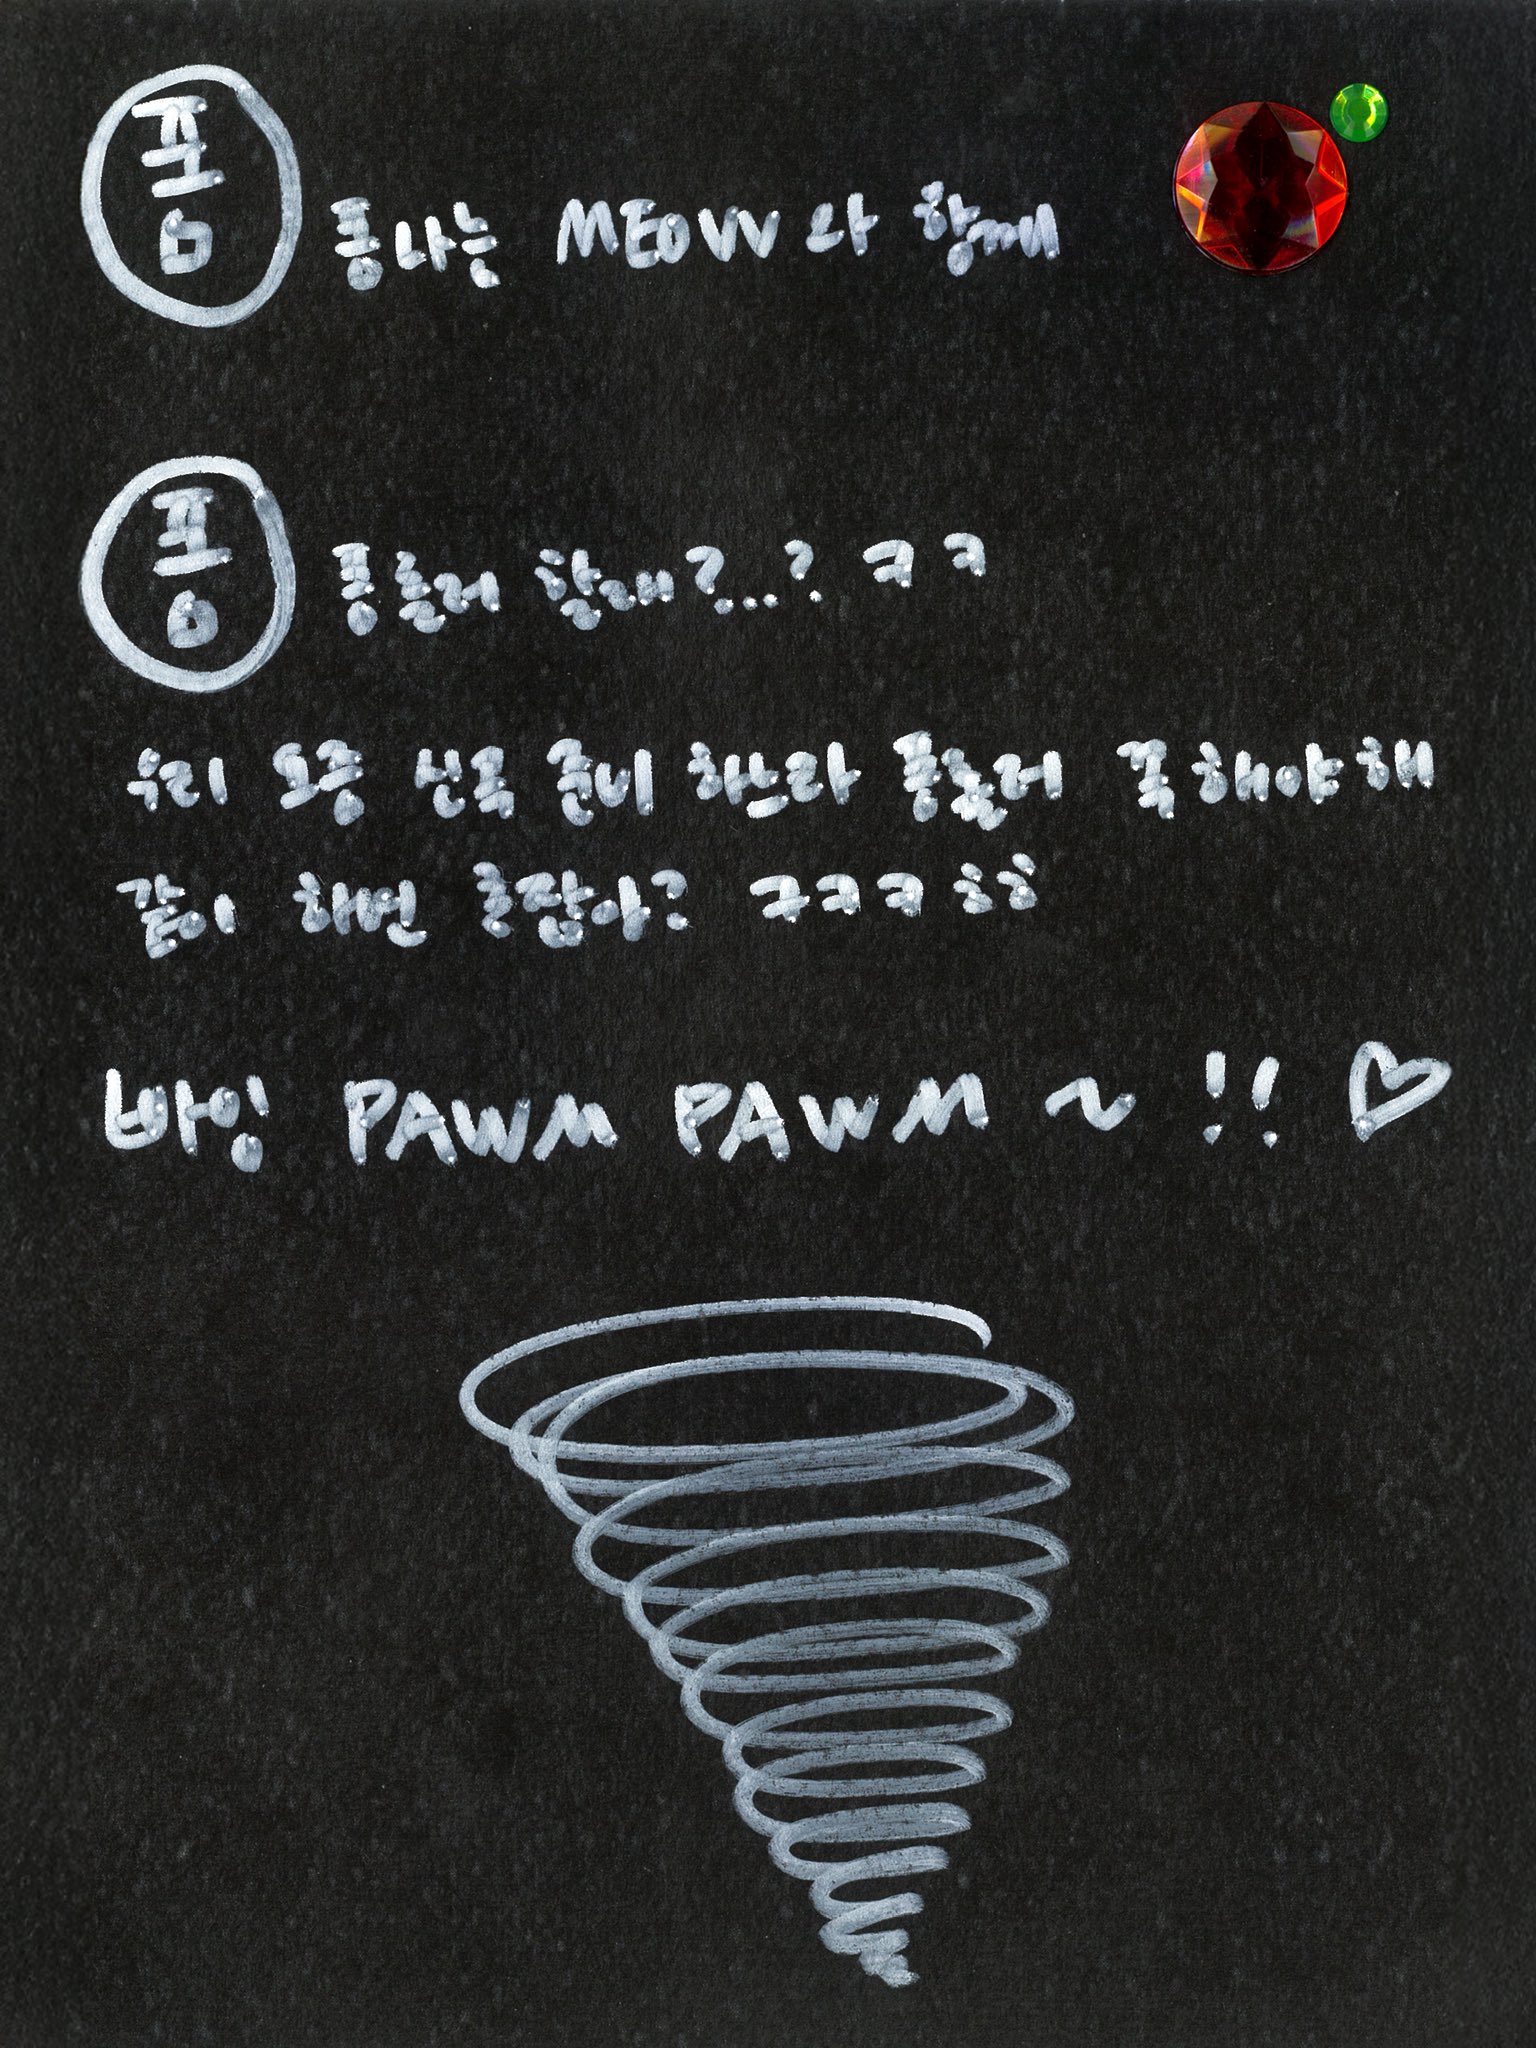 퐁
퐁나는 MEOVV와 함께
퐁
퐁츄러 할래?...? ㅋㅋ
우리 요즘 신곡 준비 하느라 퐁츄러 꼭 해야해
같이 해번 죤잖아? ㅋㅋㅋ ㅎㅎ
바잉 PAWM PAWM ~ !! ♡